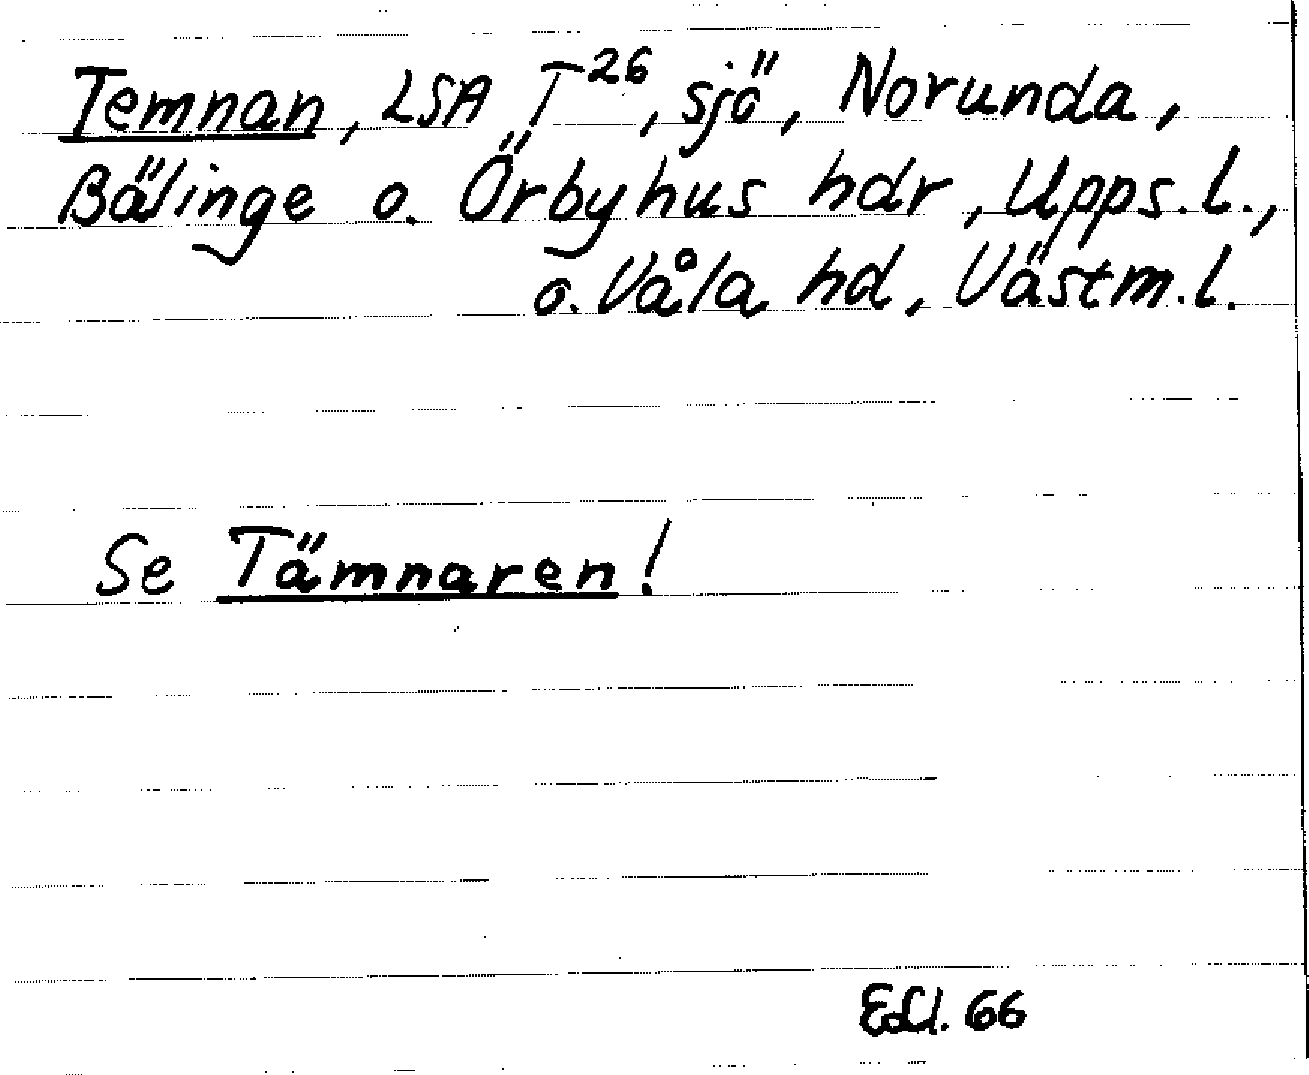 Temnan, LSA T26, sjö, Norunda,
Bälinge o. Örbyhus hdr, Upps.l.,
o. Våla hd, Västm.l.
Se Tämnaren!
66